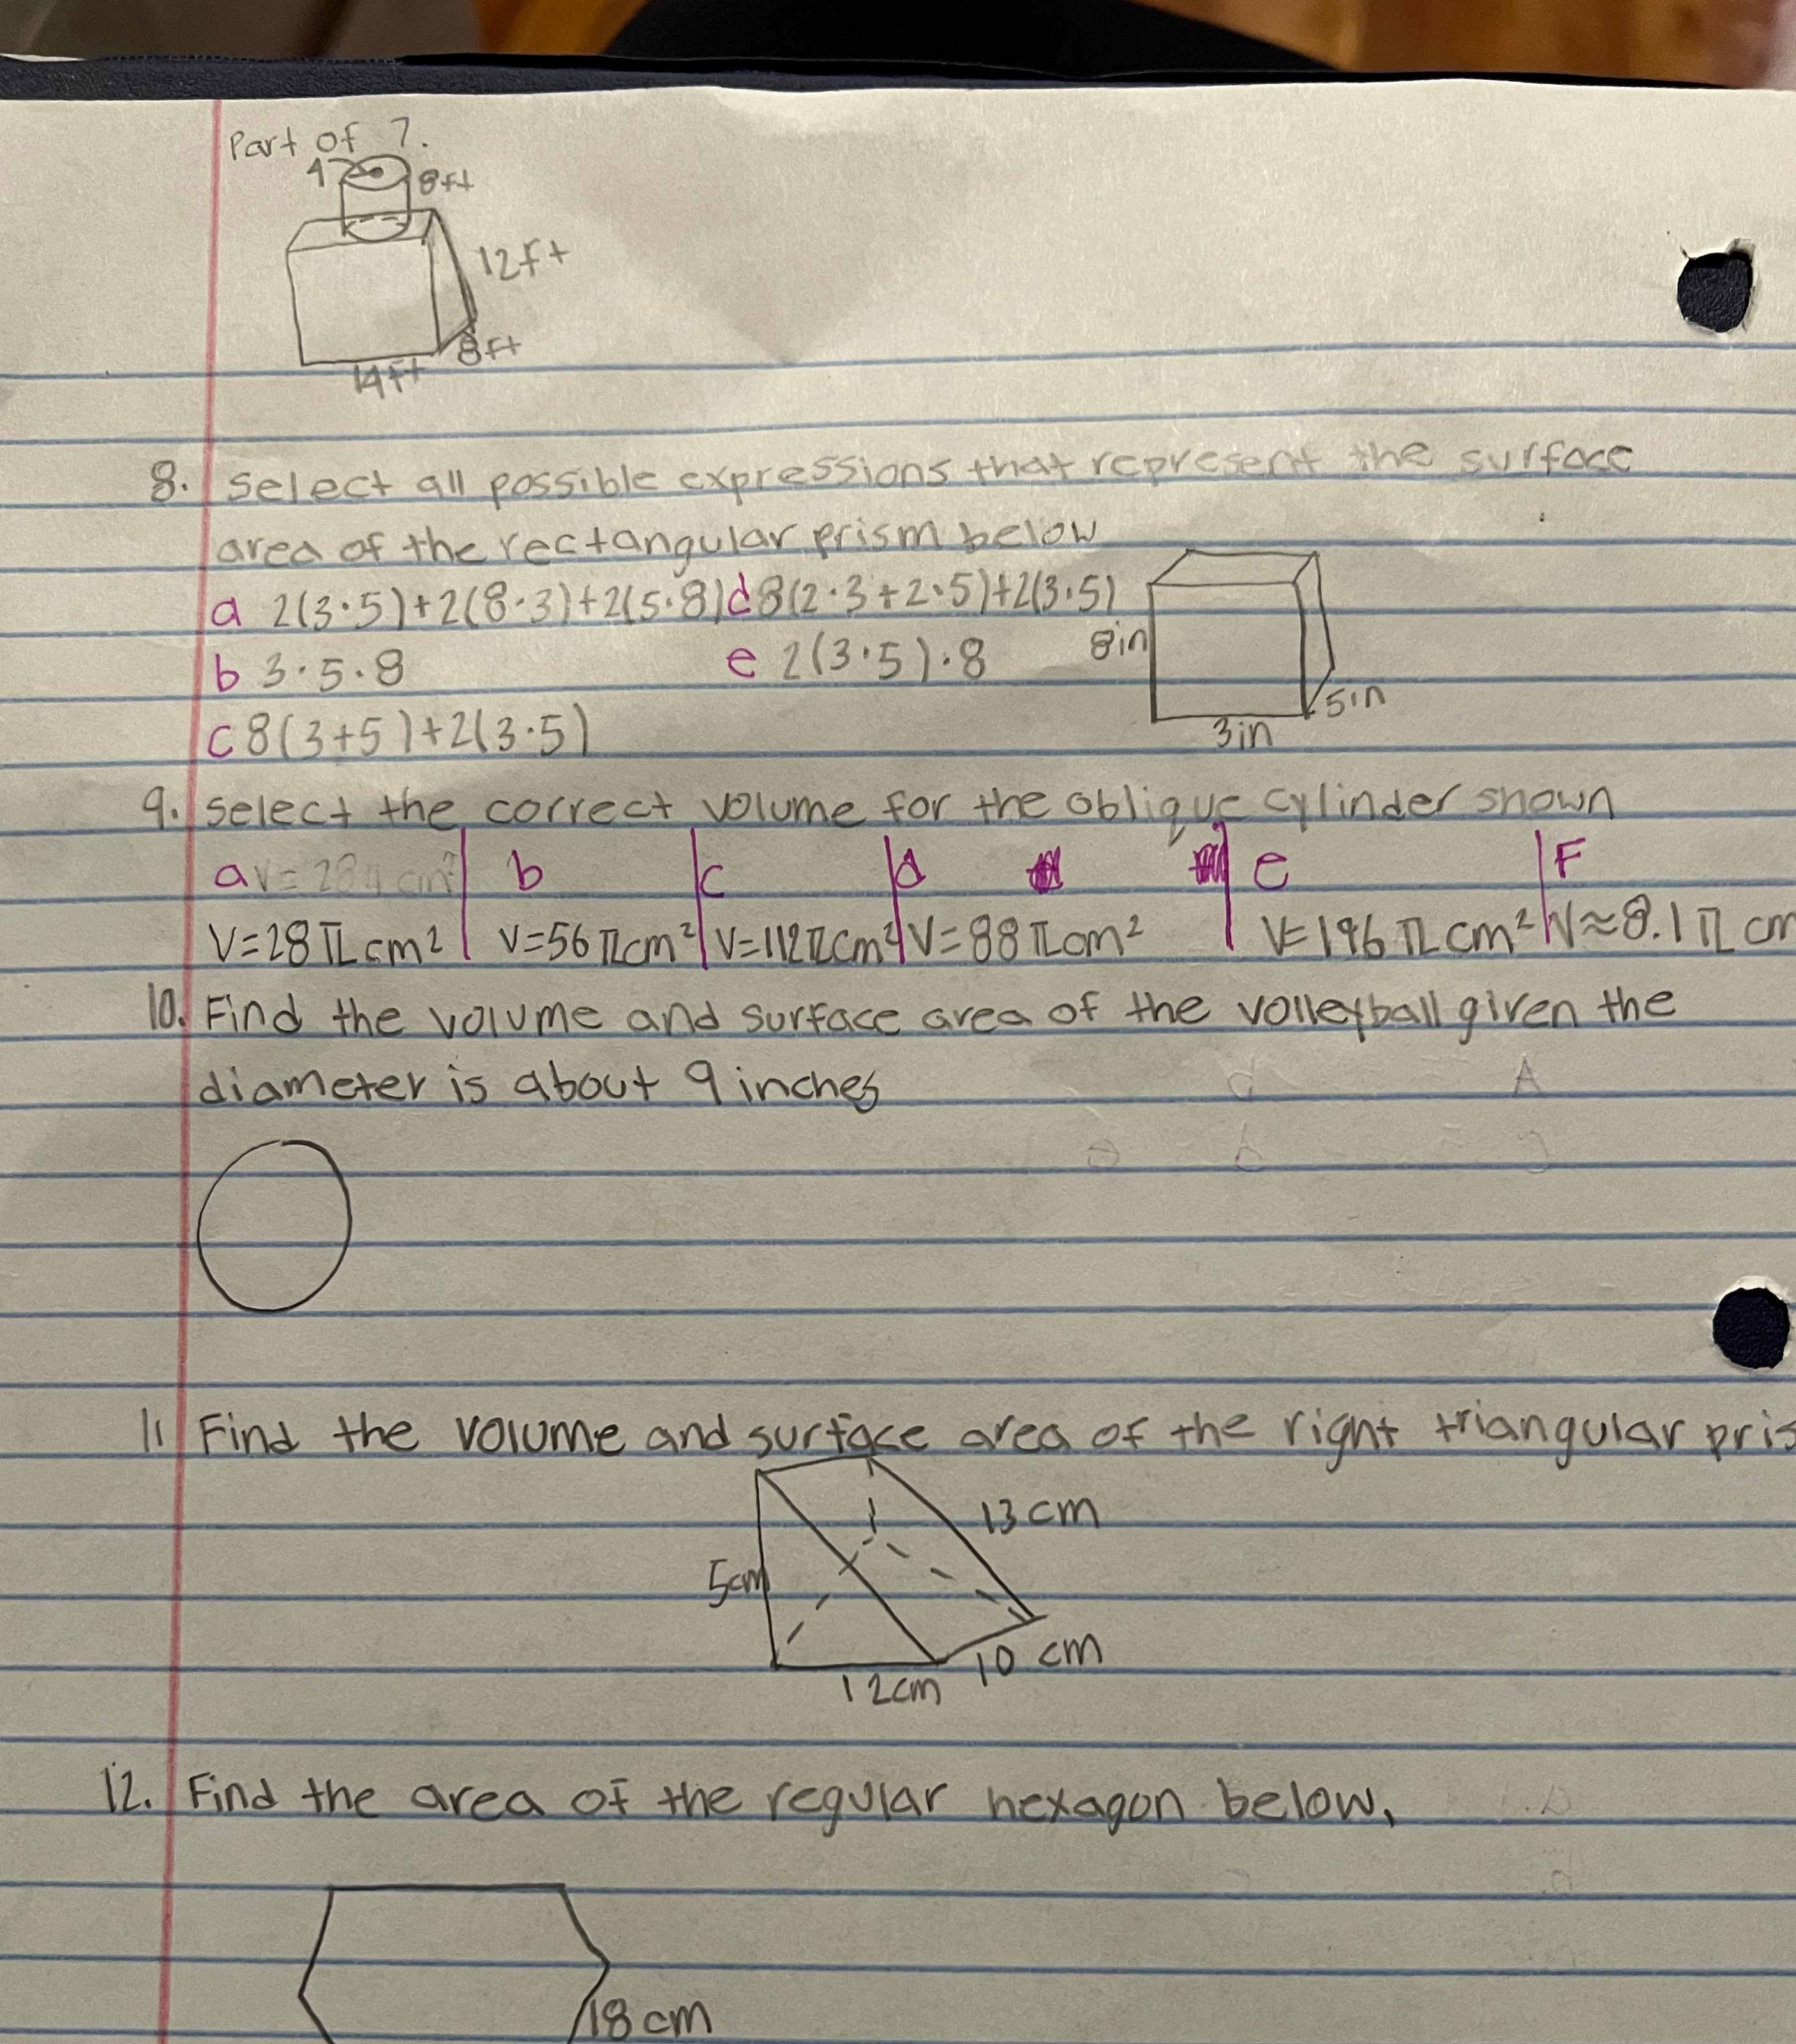 Part of 7.
4 8ft
12ft
8ft
14ft
8. select all possible expressions that represent the surface
area of the rectangular prism below
a 2(3·5)+2(8·3)+2(5·8) d 8(2·3+2·5)+2(3·5)
b 3·5·8 e 2(3·5)·8 8in
5in
c 8(3+5)+2(3·5) 3in
9. select the correct volume for the oblique cylinder shown
a V=28π cm² b c d e F
V=28π cm² V=56π cm² V=112π cm² V=88π cm² V=196π cm² V≈8.1π cm
10. Find the volume and surface area of the volleyball given the
diameter is about 9 inches
11 Find the volume and surface area of the right triangular pris
13cm
5cm
10 cm
12cm
12. Find the area of the regular hexagon below.
18cm